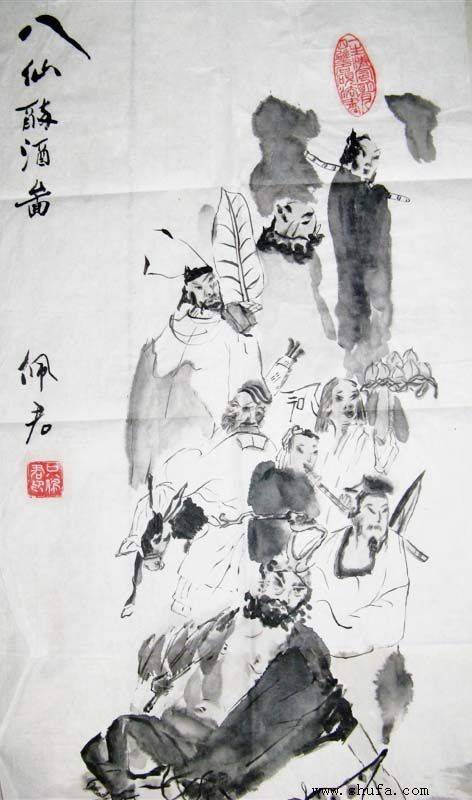 八仙醉酒图
佩君
只佩君印
www.shufa.com